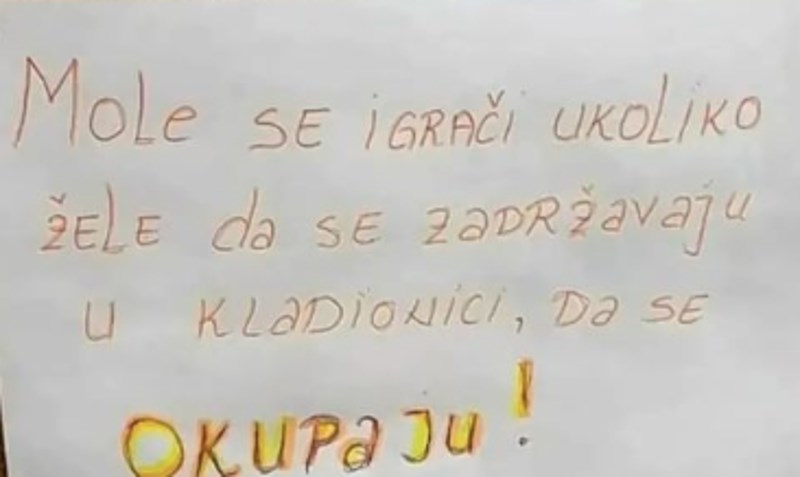 Mole SE iGRAČi UKOLiKO
ŽELE da SE ZaDRŽavaju
U KLaDiONiCi, Da SE
OKUPaJu!